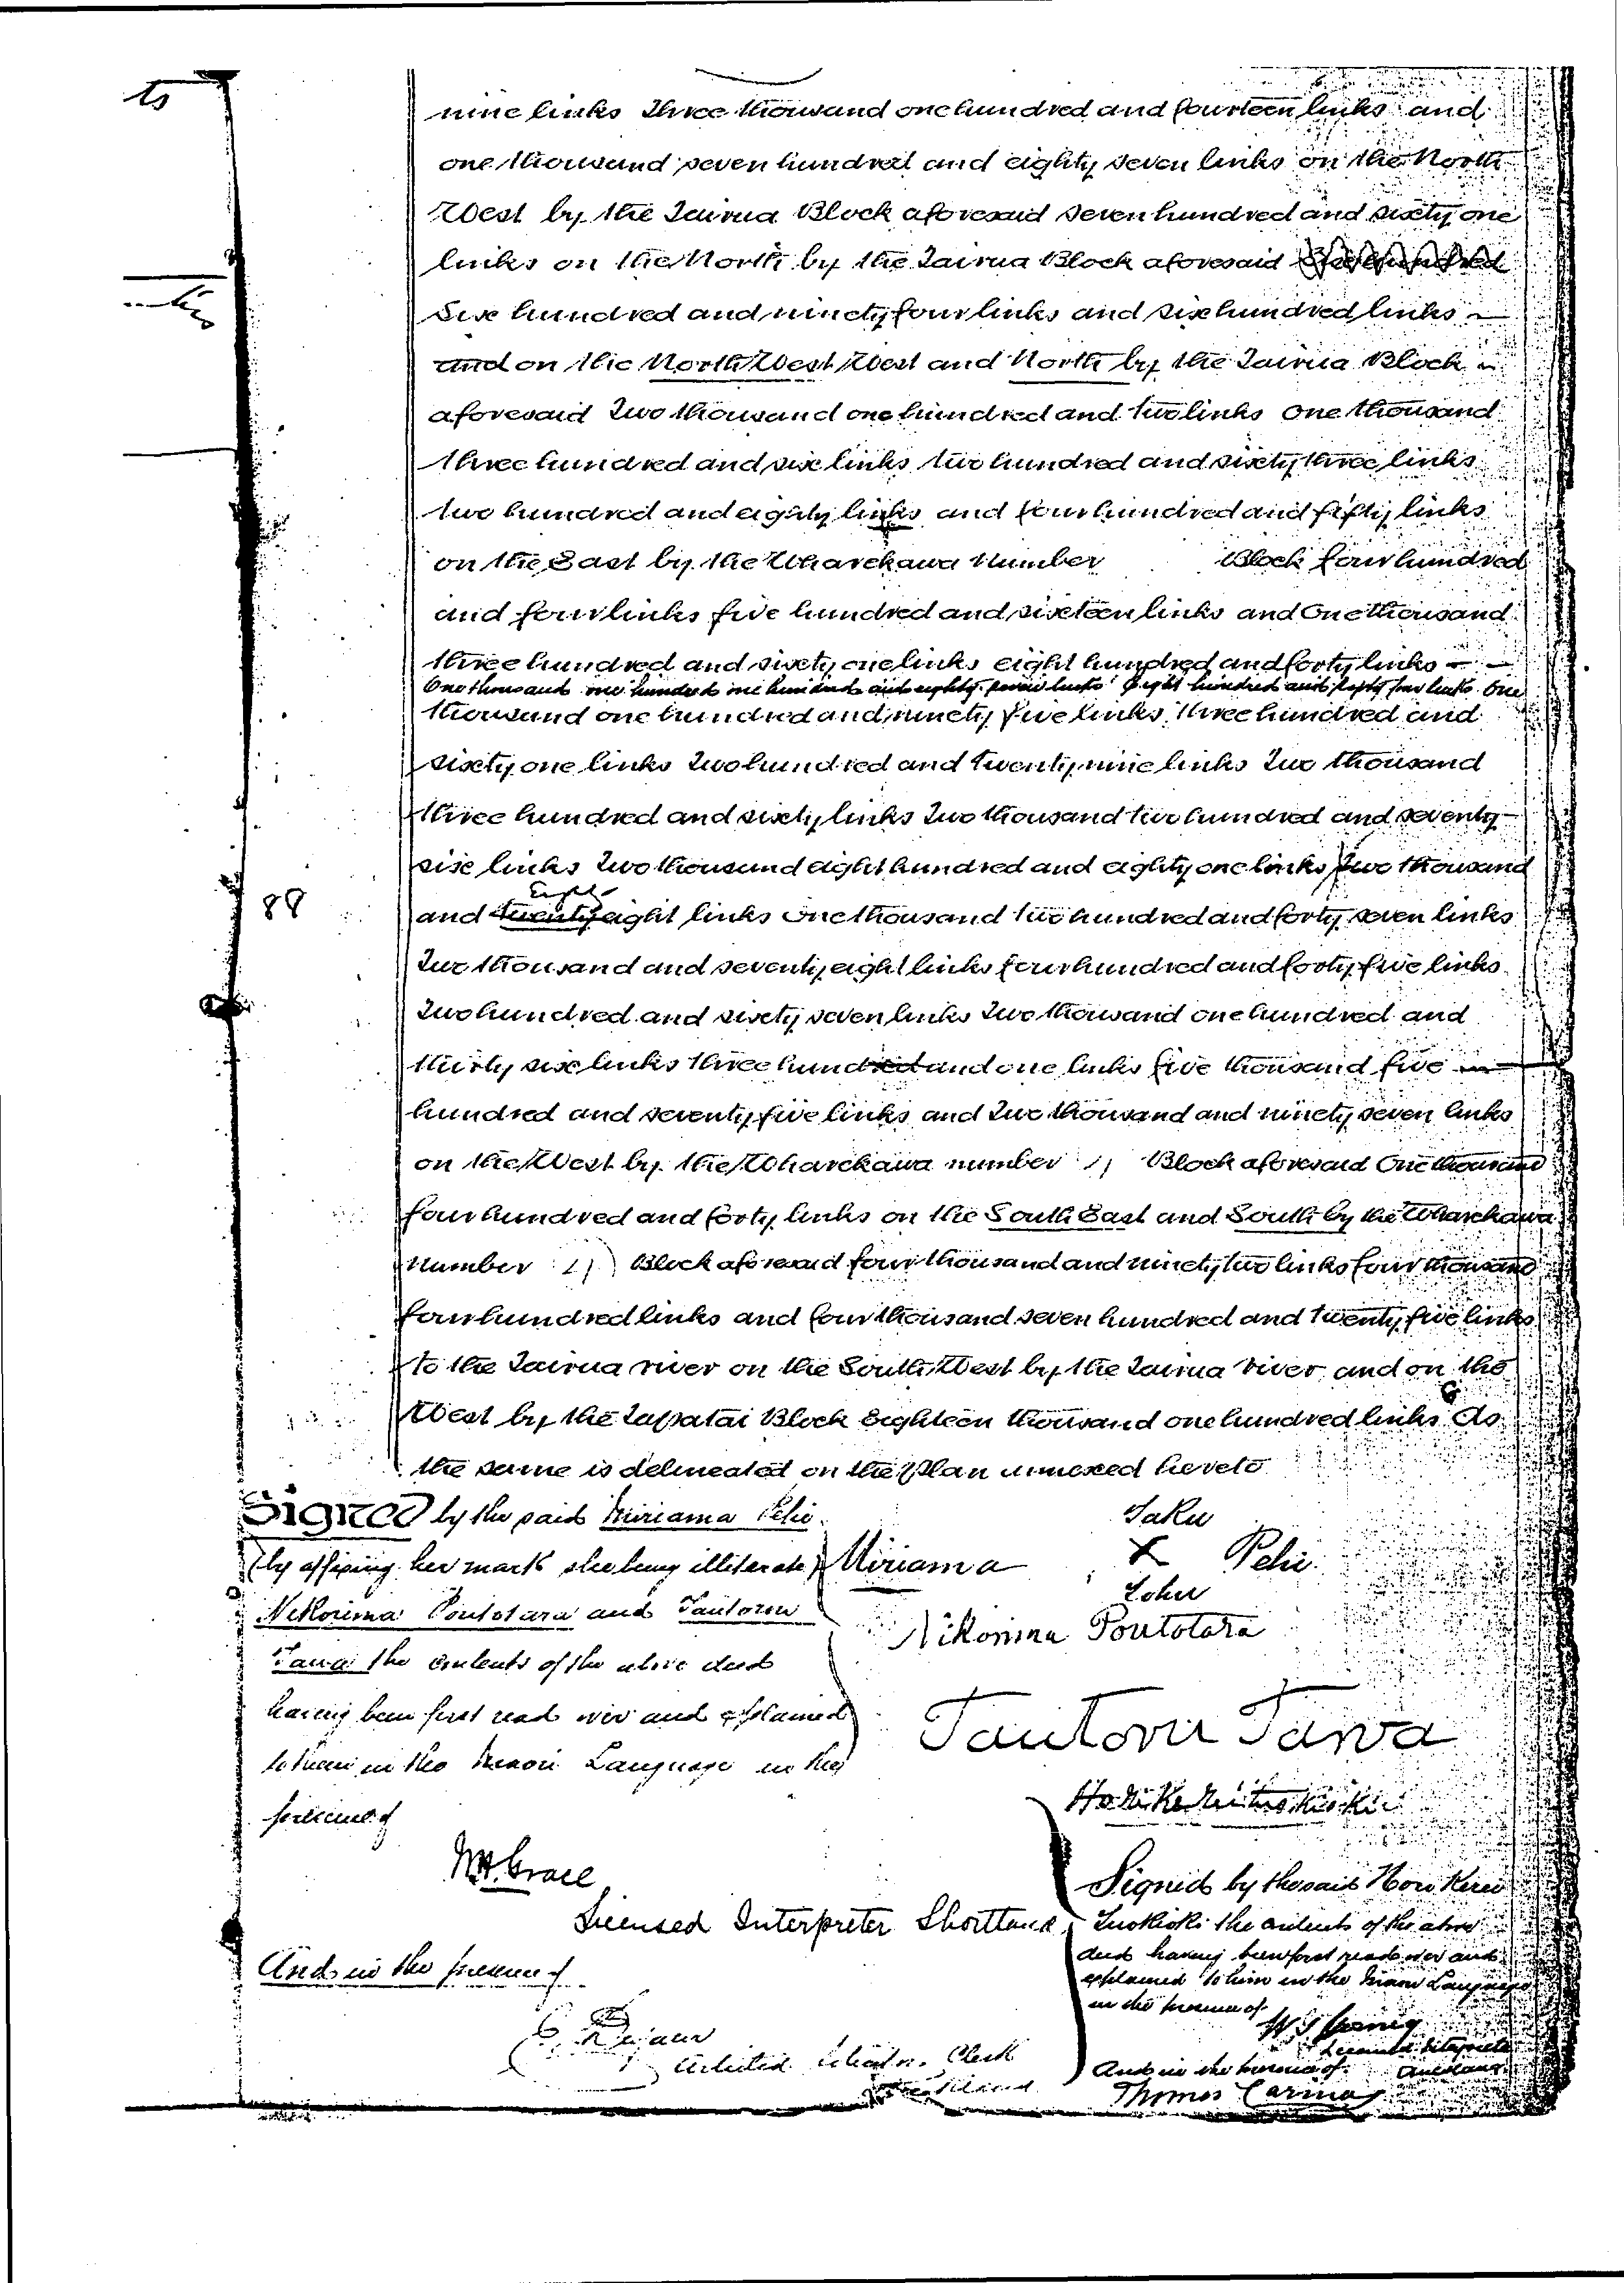 to
nine links Three thousand one hundred and fourteen links and
one thousand seven hundred and eighty seven links on the North
West by the Tairua Block aforesaid seven hundred and sixty one
links on the North by the Tairua Block aforesaid
Six hundred and ninety four links and six hundred links
and on the North West West and North by the Tairua Block
aforesaid Two thousand one hundred and two links one thousand
three hundred and six links two hundred and sixty three links
two hundred and eighty links and four hundred and fifty links
on the East by the Wharekawa Number Block four hundred
and four links five hundred and sixteen links and One thousand
three hundred and sixty one links eight hundred and forty links
One thousand one hundred and eighty links Eight hundred and fifty four links One
thousand one hundred and ninety five links three hundred and
sixty one links Two hundred and twenty nine links Two thousand
three hundred and sixty links Two thousand two hundred and seventy
six links Two thousand eight hundred and eighty one links Two thousand
88
and twenty eight links One thousand two hundred and forty seven links
Two thousand and seventy eight links four hundred and forty five links
Two hundred and sixty seven links Two thousand one hundred and
thirty six links three hundred and one links five thousand five
hundred and seventy five links and Two thousand and ninety seven links
on the West by the Wharekawa number Block aforesaid One thousand
four hundred and forty links on the South East and South by the Wharekawa
Number Block aforesaid four thousand and ninety two links four thousand
four hundred links and four thousand seven hundred and twenty five links
to the Tairua river on the South West by the Tairua river and on the
West by the Tapatai Block Eighteen thousand one hundred links As
the same is delineated on the Plan annexed hereto
Signed by the said Miriama Pehi
(by affixing her mark she being illiterate)
Nikorima Poutotara and Tautoru
Tawa the contents of the above deed
having been first read over and explained
to them in the Maori Language in the
presence of
Taku
Miriama X Pehi
Tohu
Nikorima Poutotara
Tautoru Tawa
W. H. Grace
Licensed Interpreter Shortland
And in the presence of
Clerk
Signed by the said Hori Kerei
Tuokioki the contents of the above
deed having been first read over and
explained to him in the Maori Language
in the presence of
Licensed Interpreter
Auckland
And in the presence of
Thomas